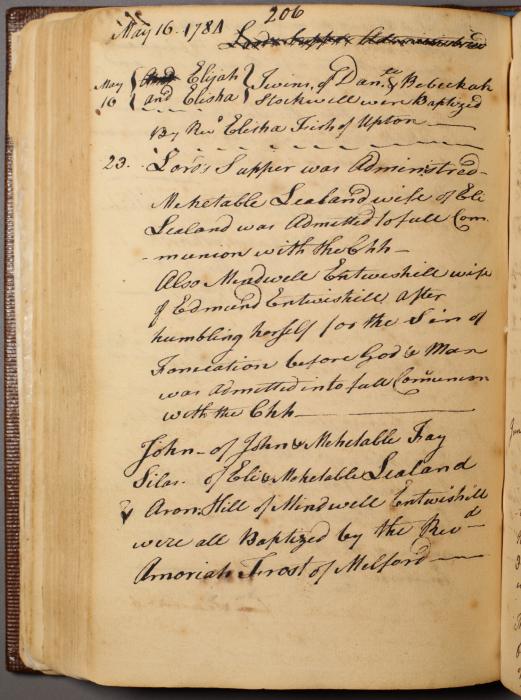 206
May 16. 1784
Lord's Supper Administred
May 16 { And Elijah } Twins, of Danll & Rebeckah
and Elisha Stockwell were Baptized
By Revd Elisha Fish of Upton
23. Lord's Supper was Administred
Mehetable Lealand wife of Eli
Lealand was Admitted to full Com-
-munion with the Chh
Also Mindwell Entwishill wife
of Edmund Entwishill after
humbling herself for the Sin of
Fornication before God & Man
was Admitted into full Comunion
with the Chh
John - of John & Mehetable Fay
Silas - of Eli & Mehetable Lealand
& Aron: Hill of Mindwell Entwishill
were all Baptized by the Revd
Amoriah Frost of Melford